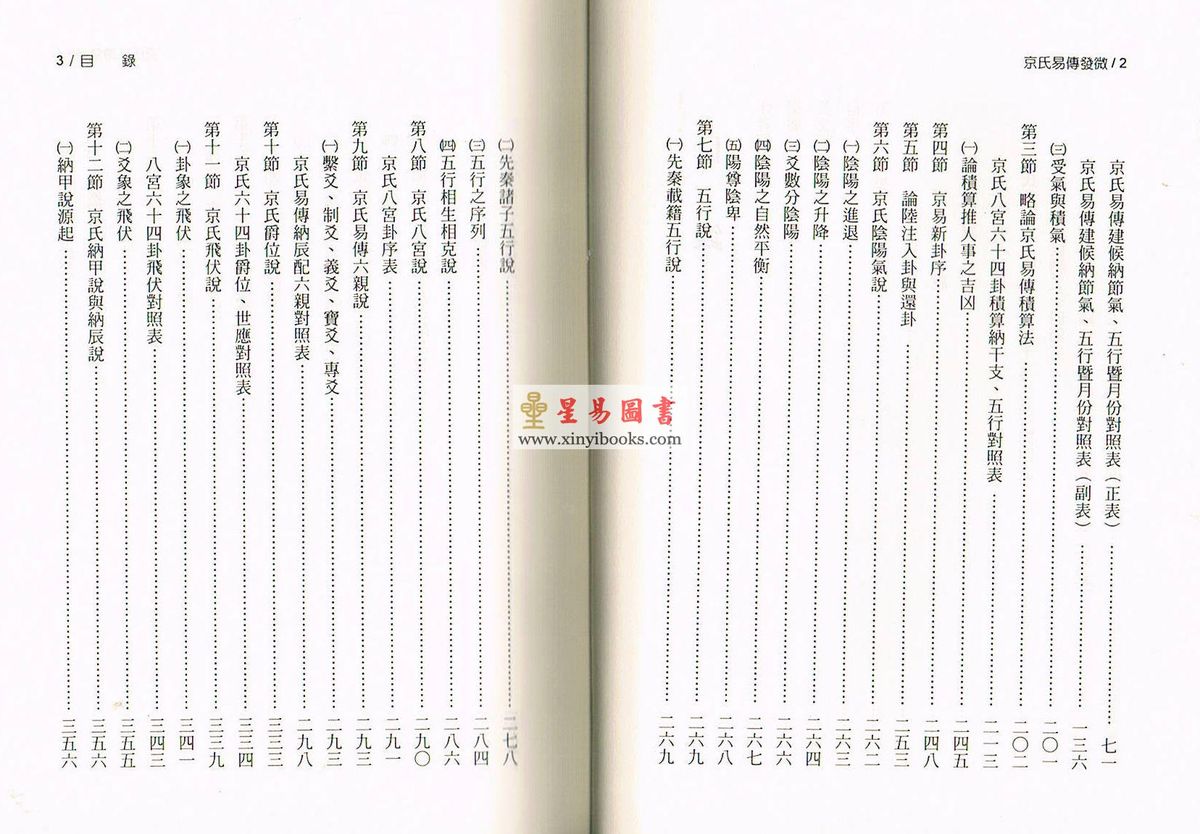 京氏易傳發微/2
京氏易傳建候納節氣、五行暨月份對照表(正表)……七一
京氏易傳建候納節氣、五行暨月份對照表(副表)……一三六
㈢受氣與積氣……二〇一
第三節 略論京氏易傳積算法……二〇二
京氏八宮六十四卦積算納干支、五行對照表……二一三
㈠論積算推人事之吉凶……二四五
第四節 京易新卦序……二四八
第五節 論陸注入卦與還卦……二五三
第六節 京氏陰陽氣說……二六二
㈠陰陽之進退……二六三
㈡陰陽之升降……二六四
㈢爻數分陰陽……二六六
㈣陰陽之自然平衡……二六七
㈤陽尊陰卑……二六八
第七節 五行說……二六九
㈠先秦載籍五行說……二六九
3/目 錄
㈡先秦諸子五行說……二七八
㈢五行之序列……二八四
㈣五行相生相克說……二八六
第八節 京氏八宮說……二九〇
京氏八宮卦序表……二九一
第九節 京氏易傳六親說……二九三
㈠繫爻、制爻、義爻、寶爻、專爻……二九三
京氏易傳納辰配六親對照表……二九八
第十節 京氏爵位說……三三三
京氏六十四卦爵位、世應對照表……三三四
第十一節 京氏飛伏說……三三九
㈠卦象之飛伏……三四一
八宮六十四卦飛伏對照表……三四三
㈡爻象之飛伏……三五五
第十二節 京氏納甲說與納辰說……三五六
㈠納甲說源起……三五六
星易圖書
www.xinyibooks.com